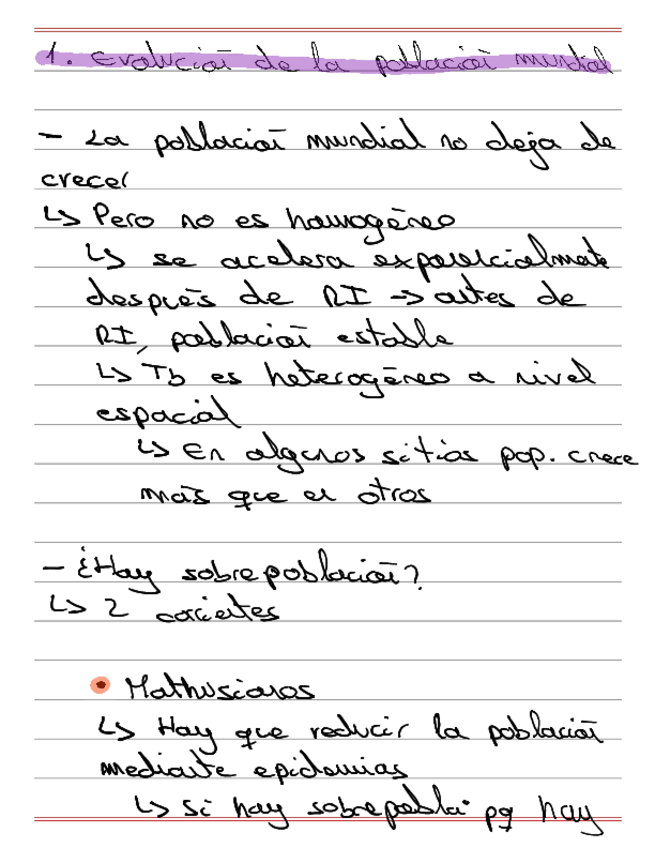 1. Evolución de la población mundial
- La población mundial no deja de
crecer
↳ Pero no es homogéneo
↳ se acelera exponencialmente
después de RI → antes de
RI, población estable
↳ Tb es heterogéneo a nivel
espacial
↳ En algunos sitios pop. crece
más que en otros
- ¿Hay sobrepoblación?
↳ 2 corrientes
• Mathusianos
↳ Hay que reducir la población
mediante epidemias
↳ Si hay sobrepobla· pq hay